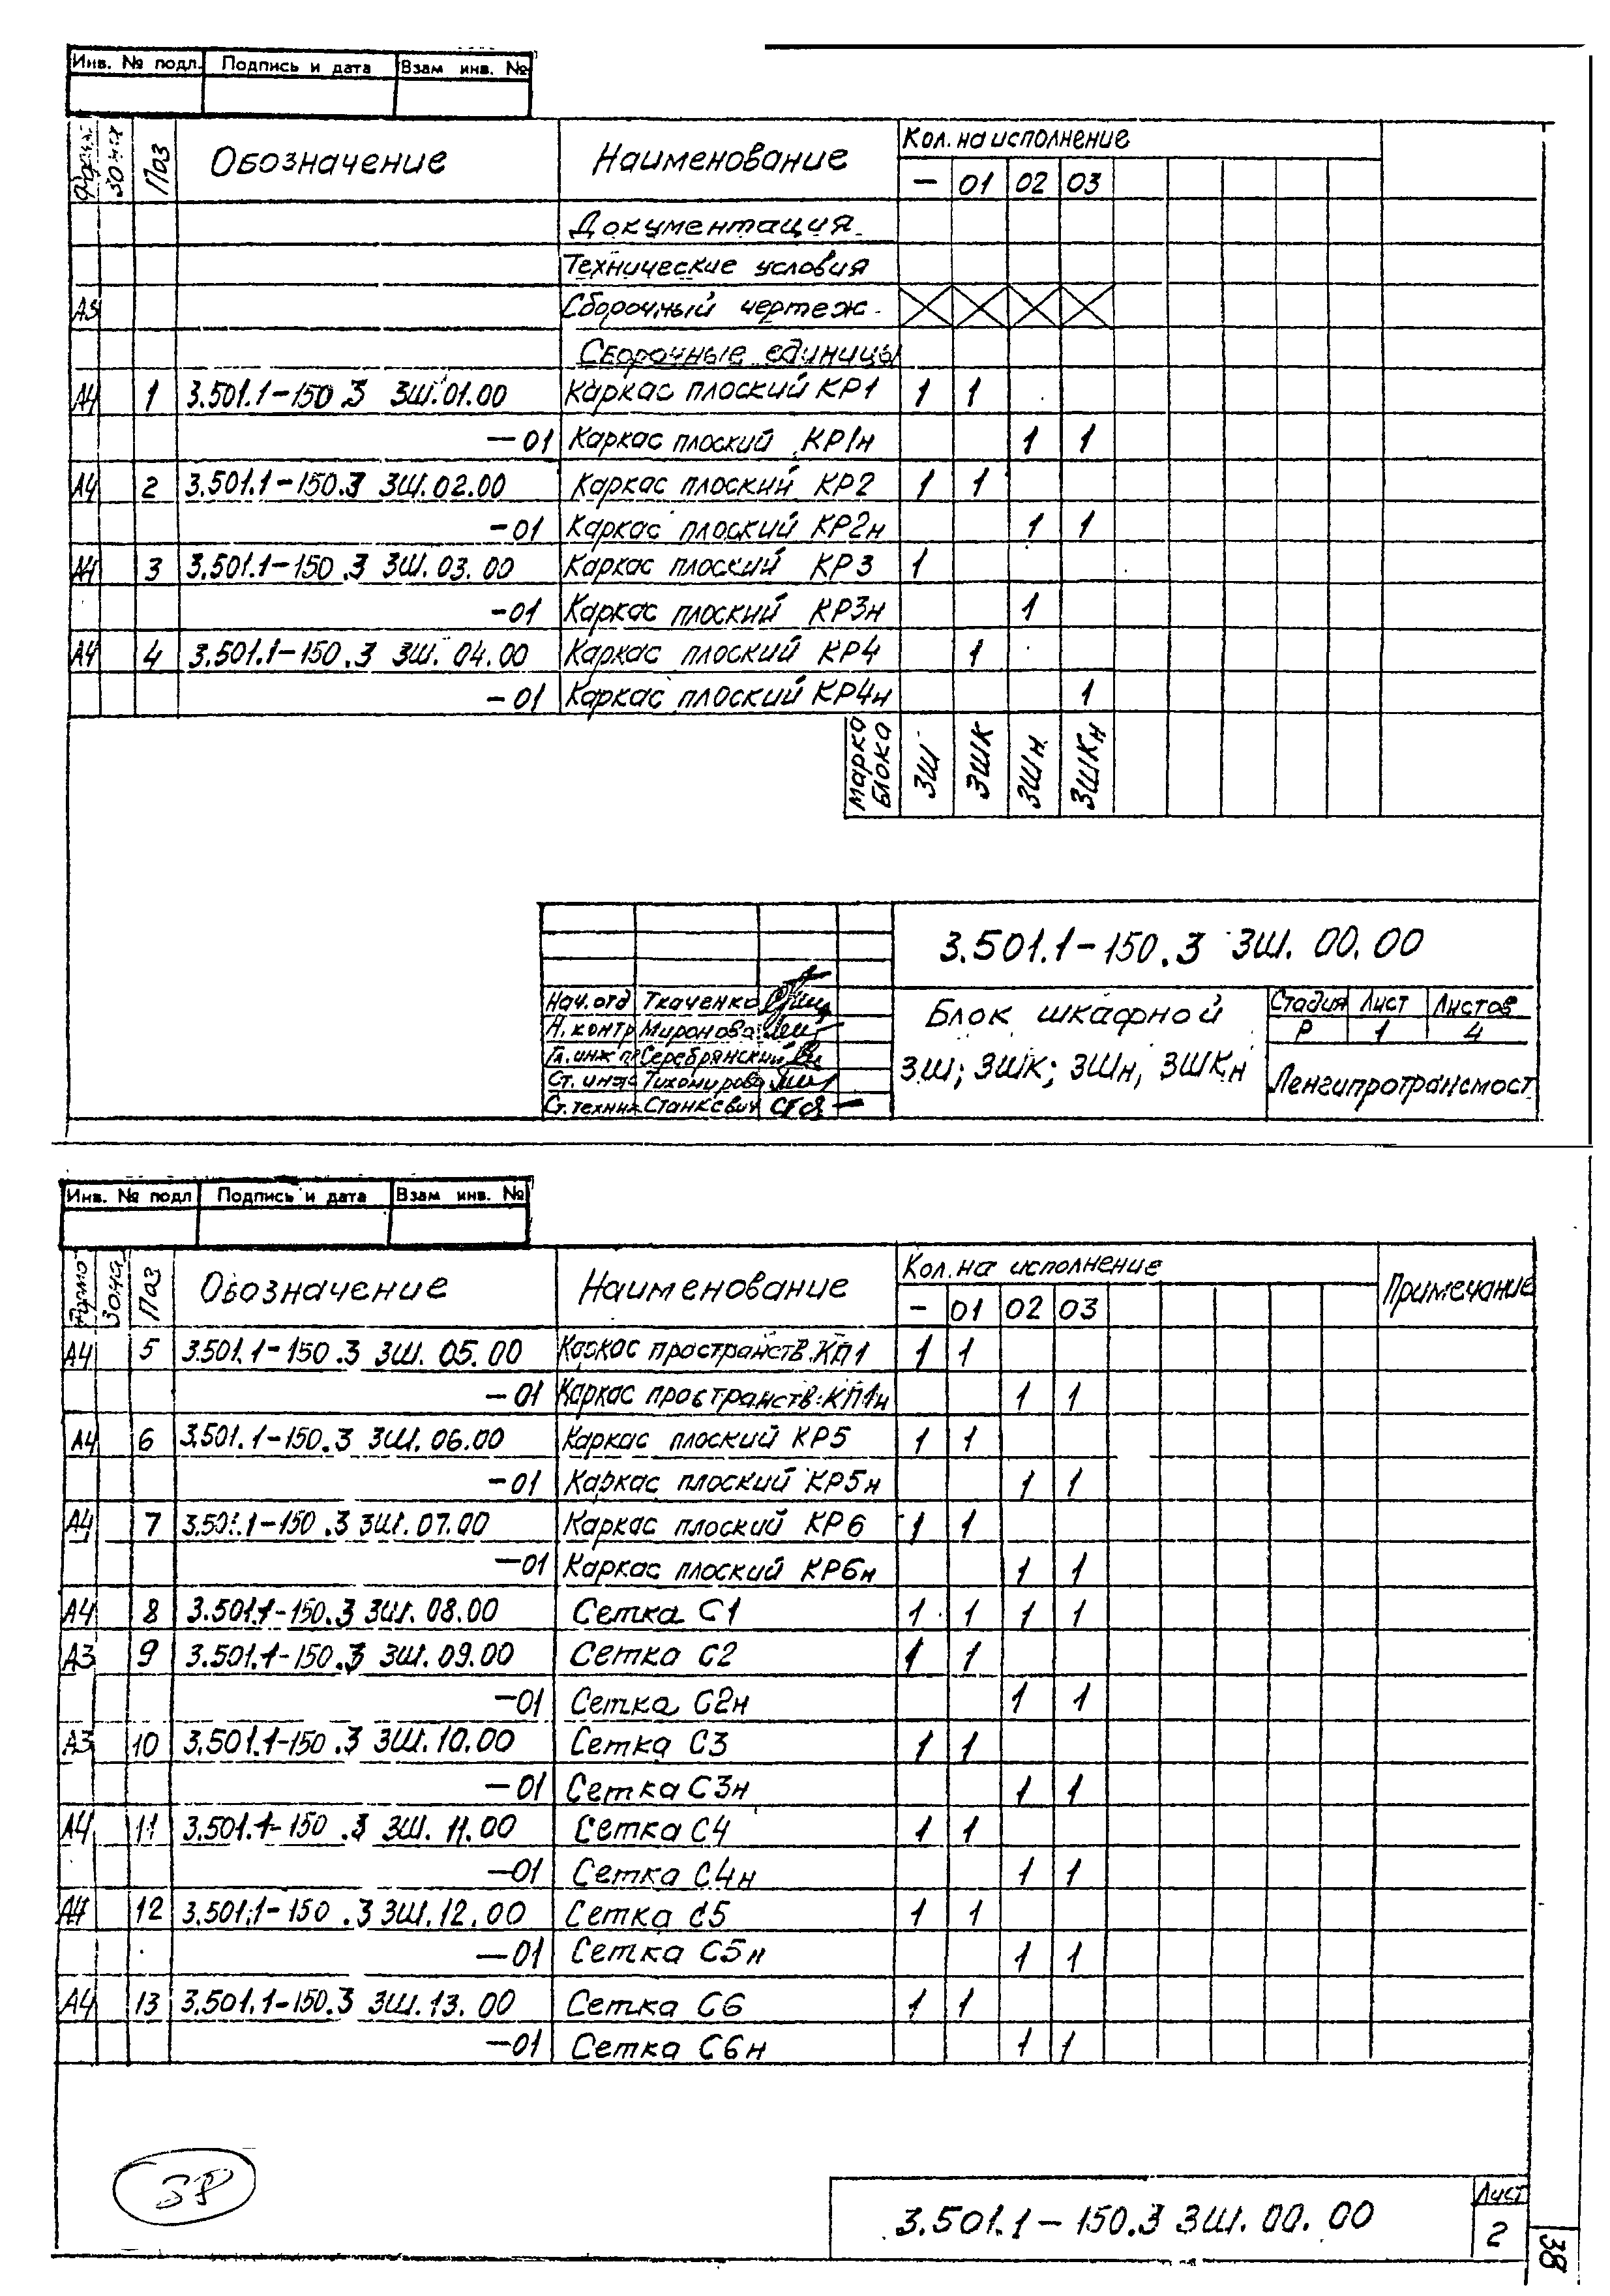 Инв. № подл. Подпись и дата Взам инв. №
Зона Поз Обозначение Наименование Кол. на исполнение
– 01 02 03
Документация
Технические условия
А3 Сборочный чертеж
Сборочные единицы
А4 1 3.501.1-150.3 3Ш.01.00 Каркас плоский КР1 1 1
-01 Каркас плоский КР1н 1 1
А4 2 3.501.1-150.3 3Ш.02.00 Каркас плоский КР2 1 1
-01 Каркас плоский КР2н 1 1
А4 3 3.501.1-150.3 3Ш.03.00 Каркас плоский КР3 1
-01 Каркас плоский КР3н 1
А4 4 3.501.1-150.3 3Ш.04.00 Каркас плоский КР4 1
-01 Каркас плоский КР4н 1
Марка блока 3Ш 3ШК 3Шн 3ШКн
3.501.1-150.3 3Ш.00.00
Нач.отд Ткаченко
Н.контр Миронова
Гл.инж.п Серебрянский
Ст.инж Тихомирова
Ст.техник Станкевич
Блок шкафной
3Ш; 3ШК; 3Шн, 3ШКн
Стадия Лист Листов
Р 1 4
Ленгипротрансмост
Инв. № подл Подпись и дата Взам инв. №
Зона Поз Обозначение Наименование Кол. на исполнение Примечание
– 01 02 03
А4 5 3.501.1-150.3 3Ш.05.00 Каркас пространств.КП1 1 1
-01 Каркас пространств.КП1н 1 1
А4 6 3.501.1-150.3 3Ш.06.00 Каркас плоский КР5 1 1
-01 Каркас плоский КР5н 1 1
А4 7 3.501.1-150.3 3Ш.07.00 Каркас плоский КР6 1 1
-01 Каркас плоский КР6н 1 1
А4 8 3.501.1-150.3 3Ш.08.00 Сетка С1 1 1 1 1
А3 9 3.501.1-150.3 3Ш.09.00 Сетка С2 1 1
-01 Сетка С2н 1 1
А3 10 3.501.1-150.3 3Ш.10.00 Сетка С3 1 1
-01 Сетка С3н 1 1
А4 11 3.501.1-150.3 3Ш.11.00 Сетка С4 1 1
-01 Сетка С4н 1 1
А4 12 3.501.1-150.3 3Ш.12.00 Сетка С5 1 1
-01 Сетка С5н 1 1
А4 13 3.501.1-150.3 3Ш.13.00 Сетка С6 1 1
-01 Сетка С6н 1 1
3.501.1-150.3 3Ш.00.00
Лист
2
38